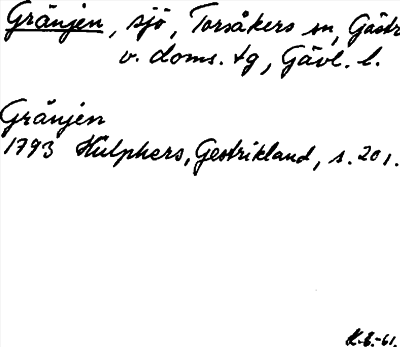 Gränjen, sjö, Torsåkers sn, Gästr
v. doms. tg, Gävl. l.
Gränjen
1793 Hülphers, Gestrikland, s. 201.
K.E.-61.